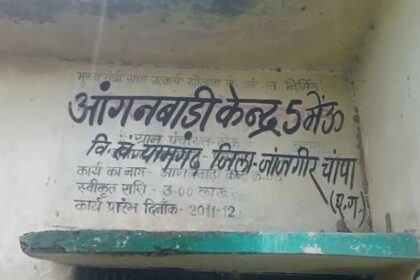 मुख्य मंत्री ग्राम उत्कर्ष योजना के अंतर्गत निर्मित
आंगनबाडी केन्द्र 5 मेंऊ
ग्राम पंचायत-
वि.खं. पामगढ़ जिला-जांजगीर चांपा
(छ.ग.)
कार्य का नाम-
स्वीकृत राशि - 3.00 लाख
कार्य प्रारंभ दिनाँक- 2011-12